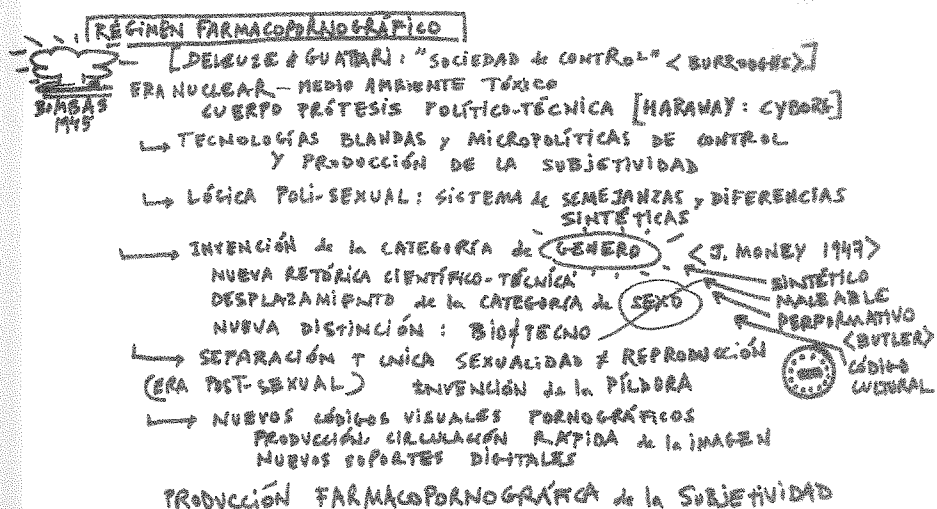 RÉGIMEN FARMACOPORNOGRÁFICO
[DELEUZE & GUATARI: "SOCIEDAD de CONTROL" < BURROUGHS>]
BOMBAS
1945
ERA NUCLEAR - MEDIO AMBIENTE TÓXICO
CUERPO PRÓTESIS POLÍTICO-TÉCNICA [HARAWAY: CYBORG]
TECNOLOGÍAS BLANDAS y MICROPOLÍTICAS DE CONTROL
Y PRODUCCIÓN DE LA SUBJETIVIDAD
LÓGICA POLI-SEXUAL: SISTEMA de SEMEJANZAS y DIFERENCIAS
SINTÉTICAS
INVENCIÓN de la CATEGORÍA de GENERO <J. MONEY 1947>
NUEVA RETÓRICA CIENTÍFICO-TÉCNICA
DESPLAZAMIENTO de la CATEGORÍA de SEXO
NUEVA DISTINCIÓN: BIO/TECNO
SINTÉTICO
MALEABLE
PERFORMATIVO
<BUTLER>
CÓDIGO
CULTURAL
SEPARACIÓN TÉCNICA SEXUALIDAD ≠ REPRODUCCIÓN
(ERA POST-SEXUAL) INVENCIÓN de la PÍLDORA
NUEVOS CÓDIGOS VISUALES PORNOGRÁFICOS
PRODUCCIÓN, CIRCULACIÓN RÁPIDA de la IMAGEN
NUEVOS SOPORTES DIGITALES
PRODUCCIÓN FARMACOPORNOGRÁFICA de la SUBJETIVIDAD